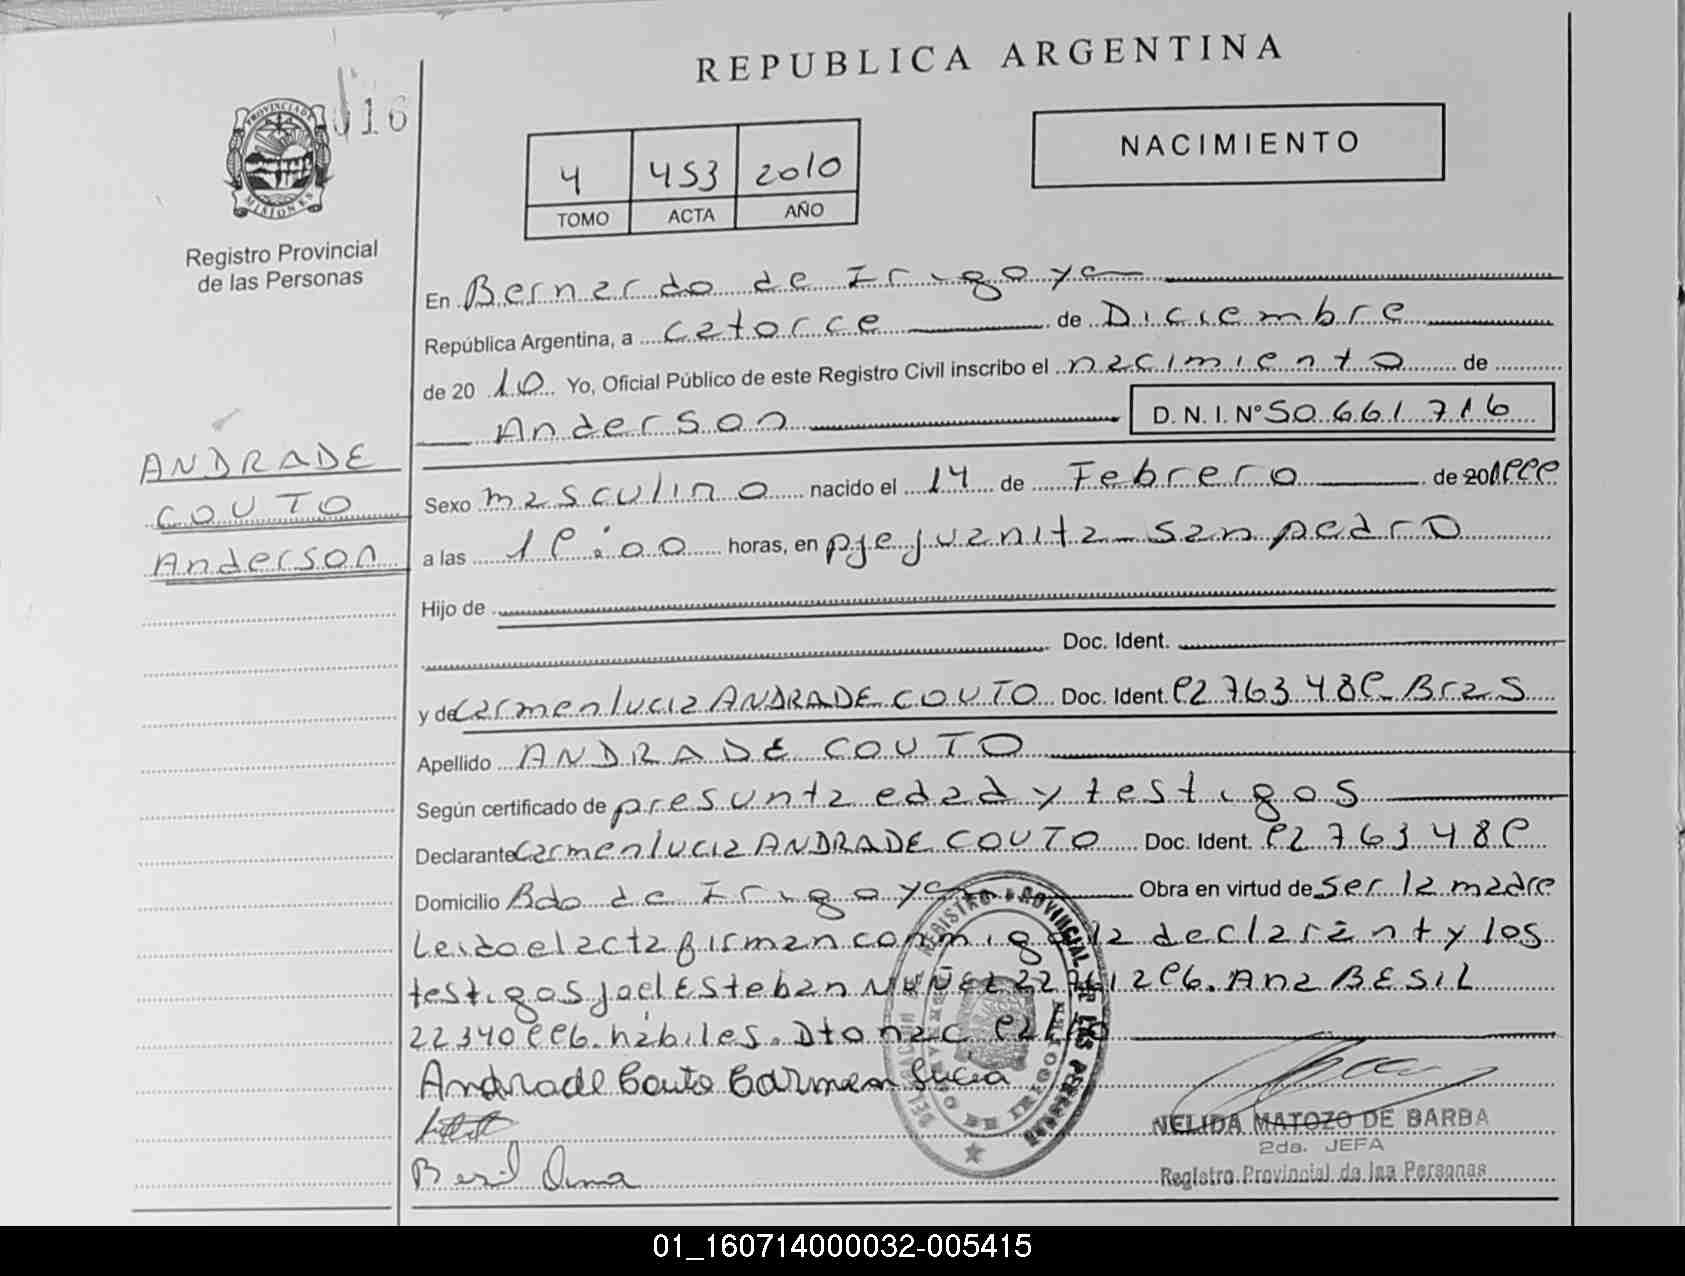 REPUBLICA ARGENTINA
PROVINCIA DE
MISIONES
16
Registro Provincial
de las Personas
4 453 2010
TOMO ACTA AÑO
NACIMIENTO
En Bernardo de Irigoye
República Argentina, a catorce de Diciembre
de 20 10 Yo, Oficial Público de este Registro Civil inscribo el nacimiento de
Anderson D. N. I. Nº 50.661.716
ANDRADE
COUTO
Anderson
Sexo masculino nacido el 14 de Febrero de
a las horas, en pje juanita San pedro
Hijo de
Doc. Ident.
y de Carmen lucia ANDRADE COUTO Doc. Ident. Bras
Apellido ANDRADE COUTO
Según certificado de presunta edad y testigos
Declarante Carmen lucia ANDRADE COUTO Doc. Ident.
Domicilio Bdo de Irigoye Obra en virtud de Ser la madre
Leido el acta firman conmigo la declarant y los
testigos Joel Esteban NUÑEZ Ana BESIL
habiles. Dto nac
Andrade Couto Carmen Lucia
NELIDA MATOZO DE BARBA
2da. JEFA
Besil Ana
Registro Provincial de las Personas
01_160714000032-005415